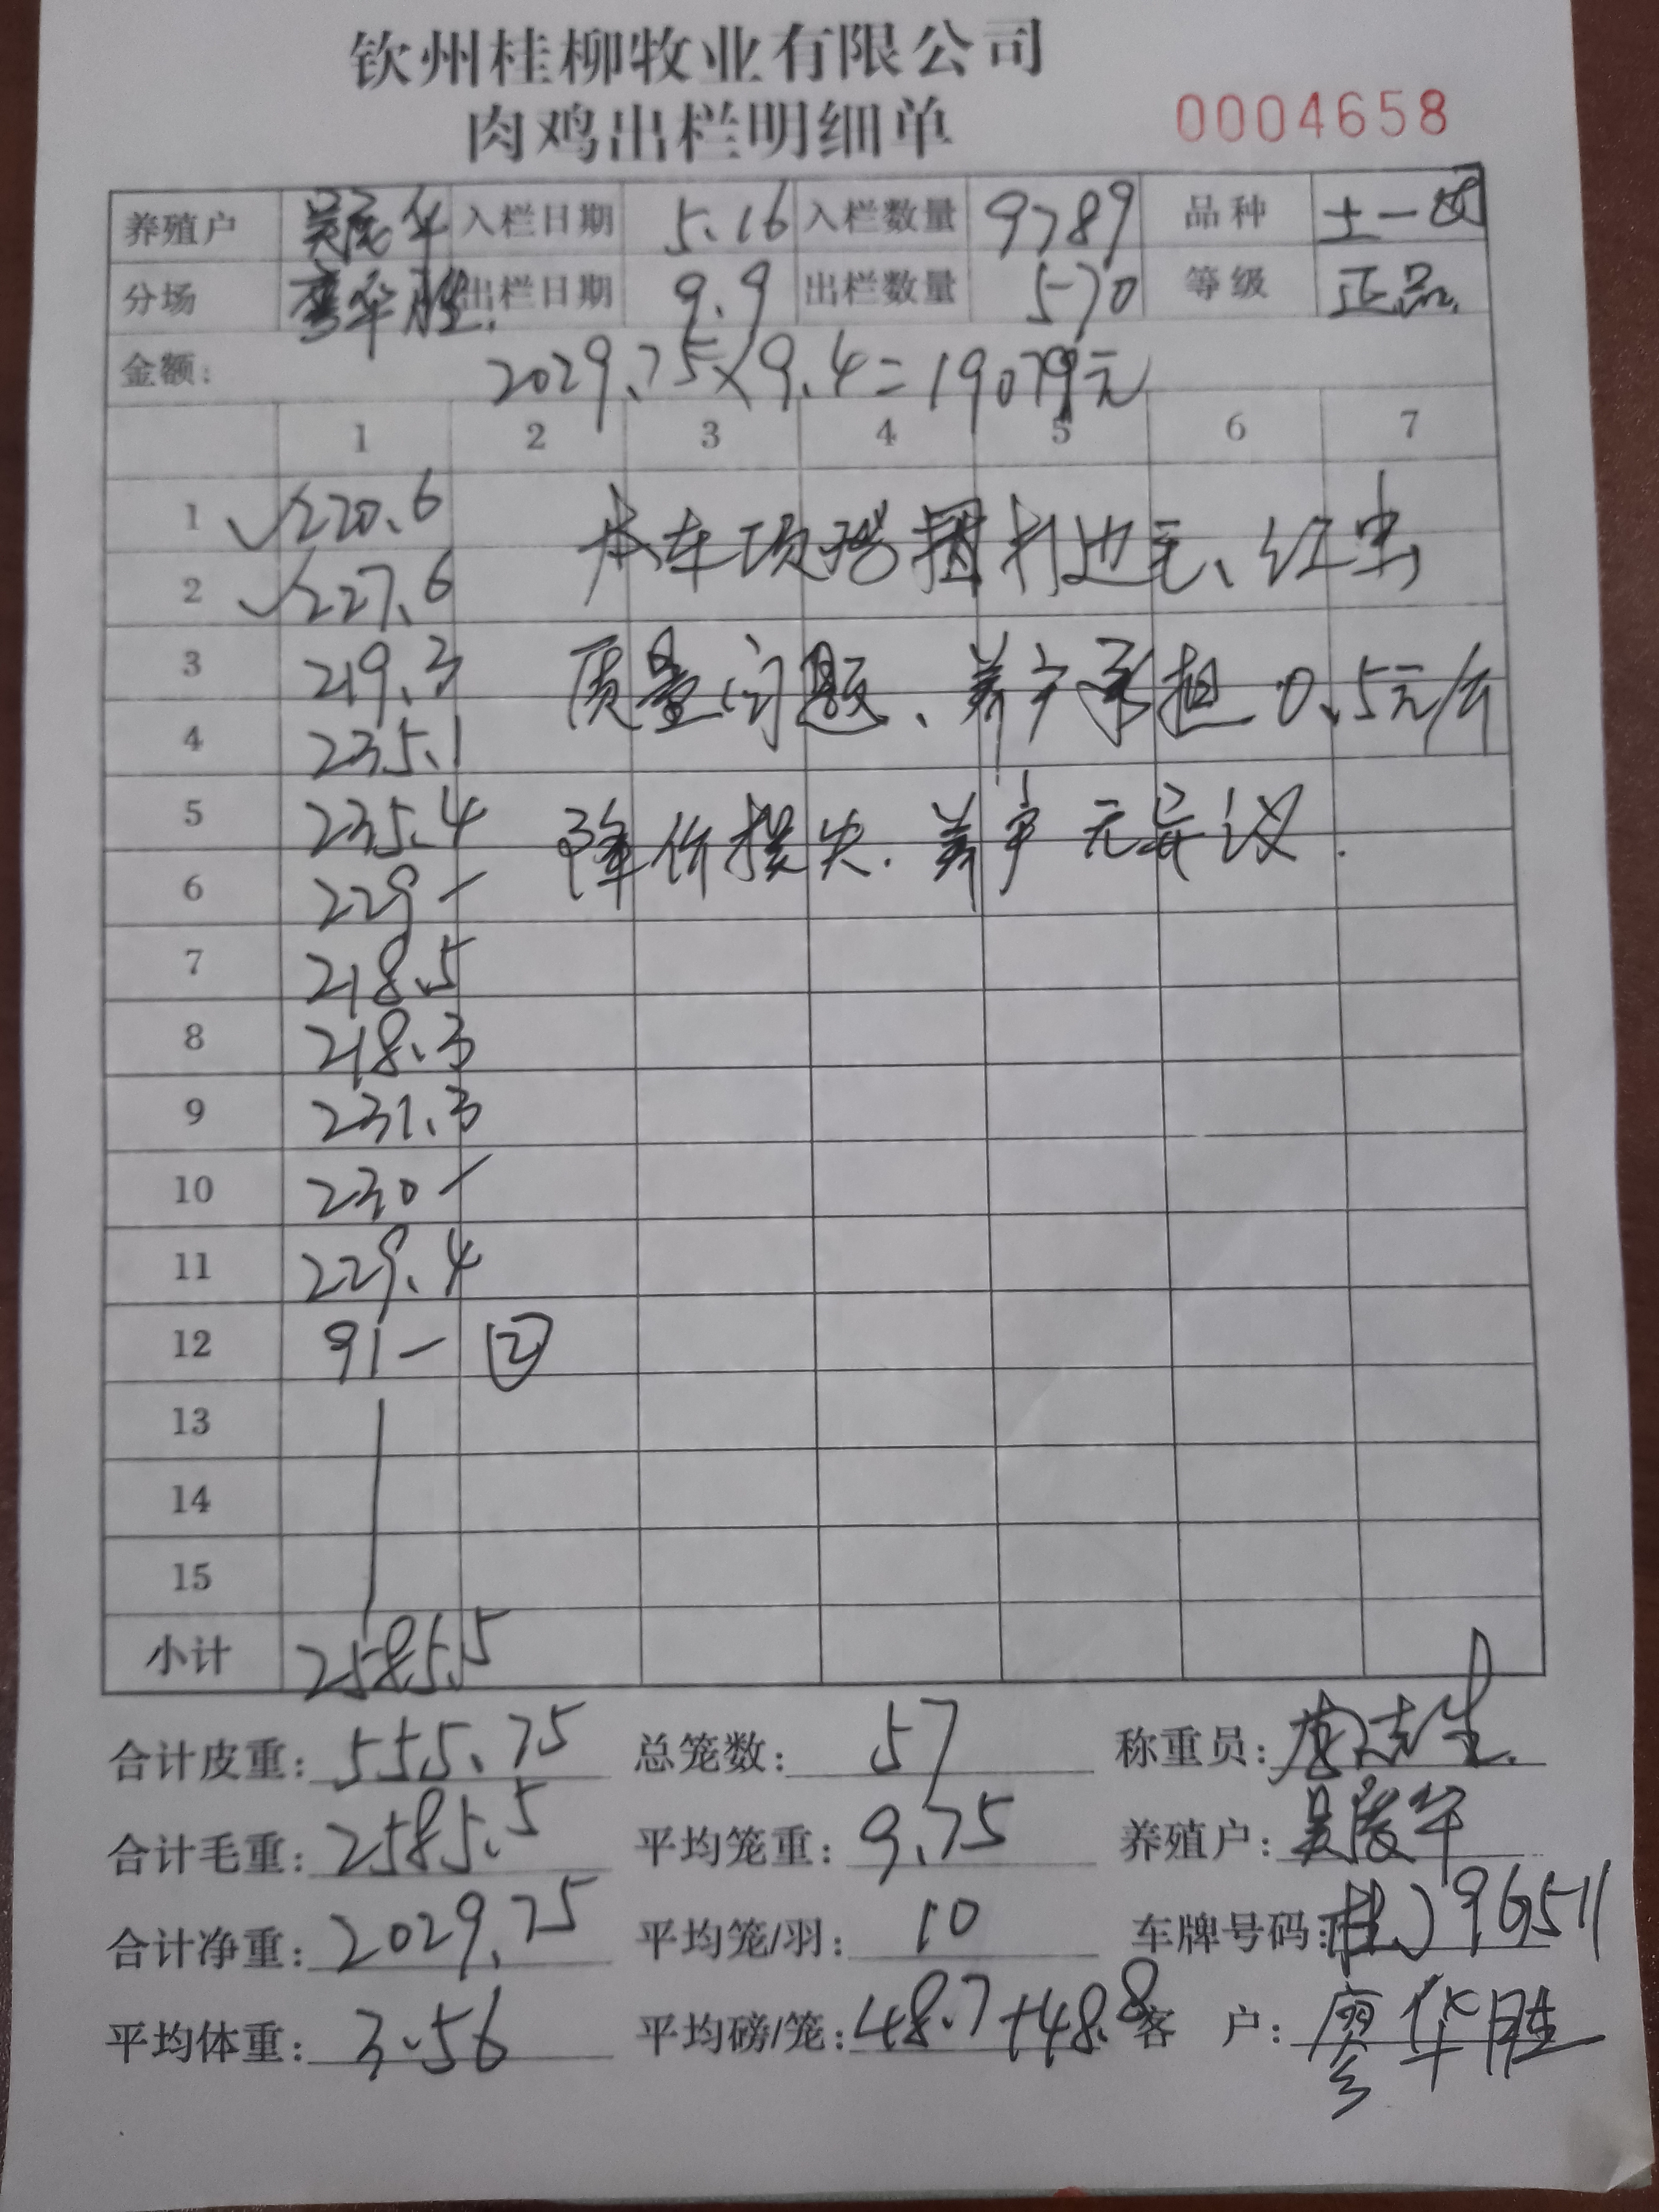 钦州桂柳牧业有限公司
肉鸡出栏明细单 0004658
养殖户 入栏日期 5.16 入栏数量 9789 品种 土一
分场 华胜 出栏日期 9.9 出栏数量 570 等级 正品
金额: 2029.75×9.4=19079元
1 2 3 4 5 6 7
1 220.6 本车项鸡 打边毛、红虫
2 227.6
3 219.3 质量问题、养户承担0.5元/斤
4 235.1
5 235.4 降价损失.养户无异议.
6 229-
7 218.5
8 218.3
9 231.3
10 230-
11 229.4
12 91- ②
13
14
15
小计 2585.5
合计皮重: 555.75 总笼数: 57 称重员:
合计毛重: 2585.5 平均笼重: 9.75 养殖户:
合计净重: 2029.75 平均笼/羽: 10 车牌号码: 96511
平均体重: 3.56 平均磅/笼: 48.7+48.8 客 户: 廖华胜